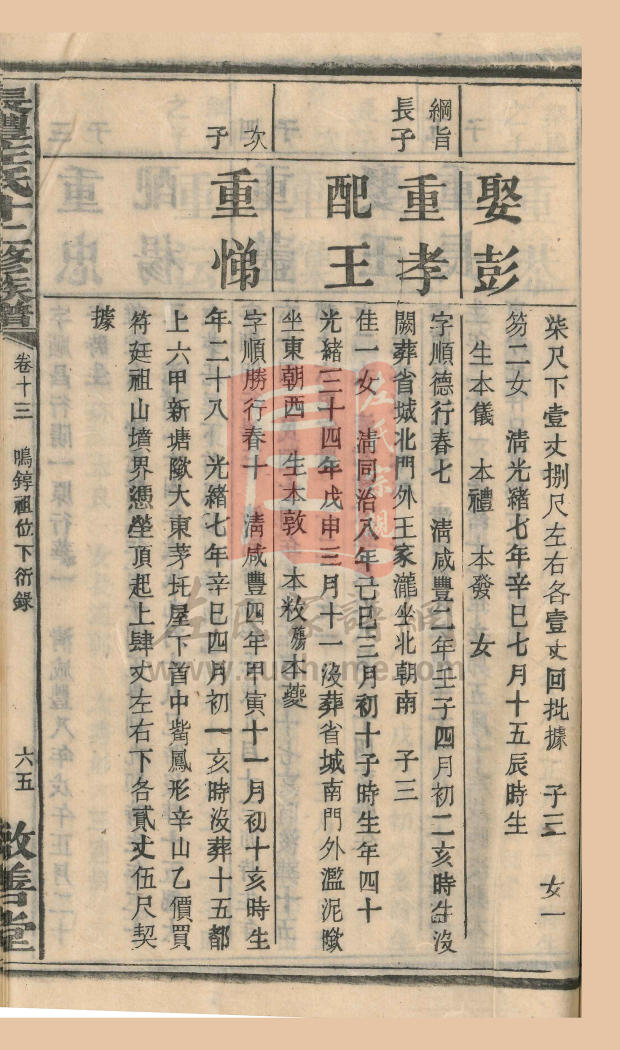 柒尺下壹丈捌尺左右各壹丈回批據　子三　女一
娶彭
笏二女　清光緒七年辛巳七月十五辰時生
生本儀　本禮　本發　女
綱旨
長子
重孝
字順德行春七　清咸豐二年壬子四月初二亥時生沒
闕葬省城北門外王家瀧坐北朝南　子三
配王
佳一女　清同治八年己巳三月初十子時生年四十
光緒三十四年戊申三月十一沒葬省城南門外濫泥
坐東朝西　生本敦　本敉殤本夔
次子
重悌
字順勝行春十　清咸豐四年甲寅十一月初十亥時生
年二十八　光緒七年辛巳四月初一亥時沒葬十五都
上六甲新塘大東茅圫屋下首中鳳形辛山乙價買
符廷祖山墳界憑塋頂起上肆丈左右下各貳丈伍尺契
據
左氏十二修族譜
卷十三　鳴鋍祖位下衍錄
六五
敬善堂
左氏宗親
左氏家譜網